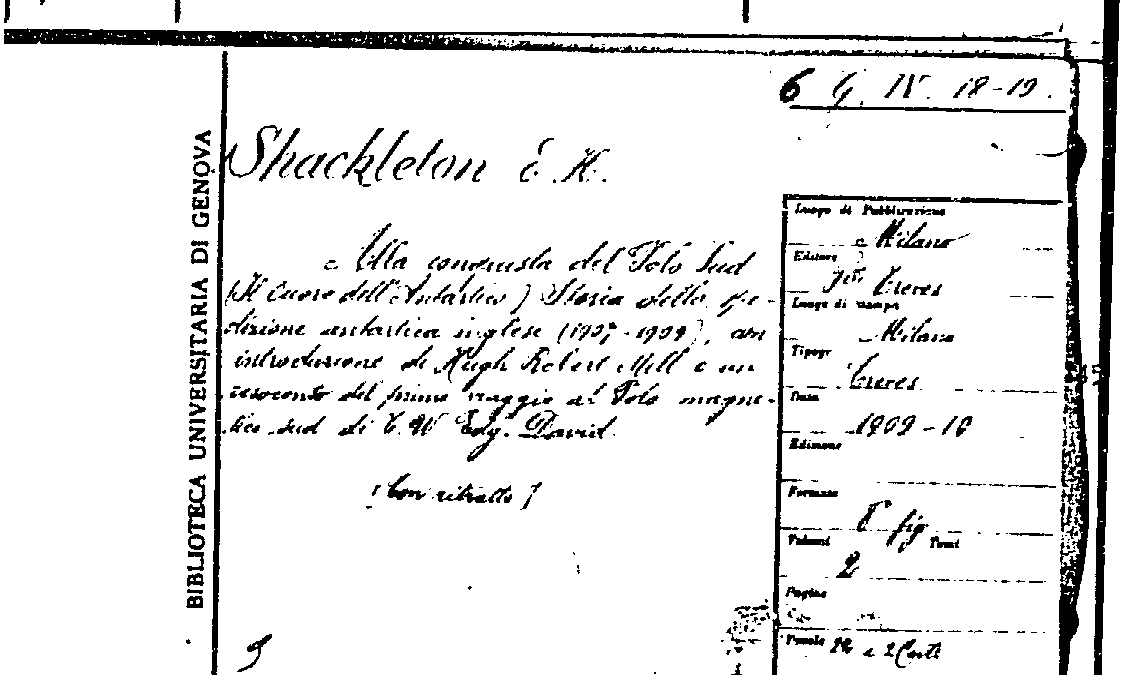 BIBLIOTECA UNIVERSITARIA DI GENOVA
6 G. IV. 18-19.
Shackleton E. H.
Alla conquista del Polo Sud
(Il Cuore dell'Antártico) Storia della spe-
dizione antartica inglese (1907-1909), con
introduzione di Hugh Robert Mill e un
resoconto del primo viaggio al Polo magne-
tico sud di T. W. Edg. David.
[Con ritratto]
Luogo di Pubblicazione
Milano
Editore
Treves
Luogo di stampa
Milano
Tipogr
Treves
Data
1909-10
Edizione
Formato
8° fig
Volumi Tomi
2
Pagine
Tavole 22 e 2 Carte